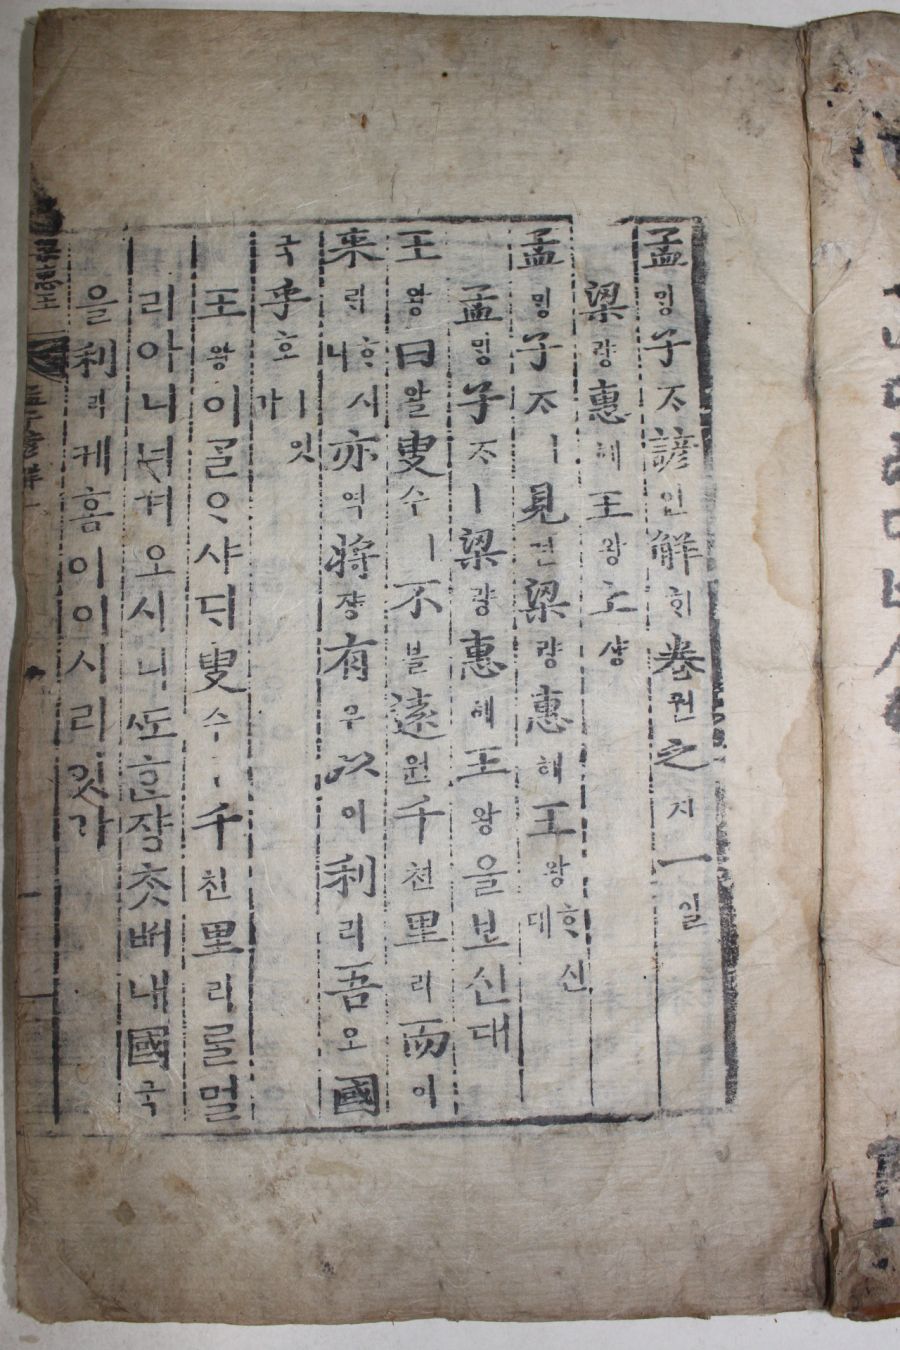 孟밍子ᄌᆞ諺언解ᄒᆡ卷권之지一일
梁량惠혜王왕上샹
孟밍子ᄌᆞㅣ見견梁량惠혜王왕ᄒᆞ신대
孟밍子ᄌᆞㅣ梁량惠혜王왕을보신대
王왕曰왈叟수ㅣ不블遠원千쳔里리而이
來ᄅᆡᄒᆞ시니亦역將쟝有유以이利리吾오國
국乎호ㅣ잇가
王왕이ᄀᆞᆯᄋᆞ샤ᄃᆡ叟수ㅣ千쳔里리ᄅᆞᆯ멀
리아니녀겨오시니ᄯᅩᄒᆞᆫ쟝ᄎᆞᆺᄡᅥ내國국
을利리케홈이이시리잇가
孟子諺解